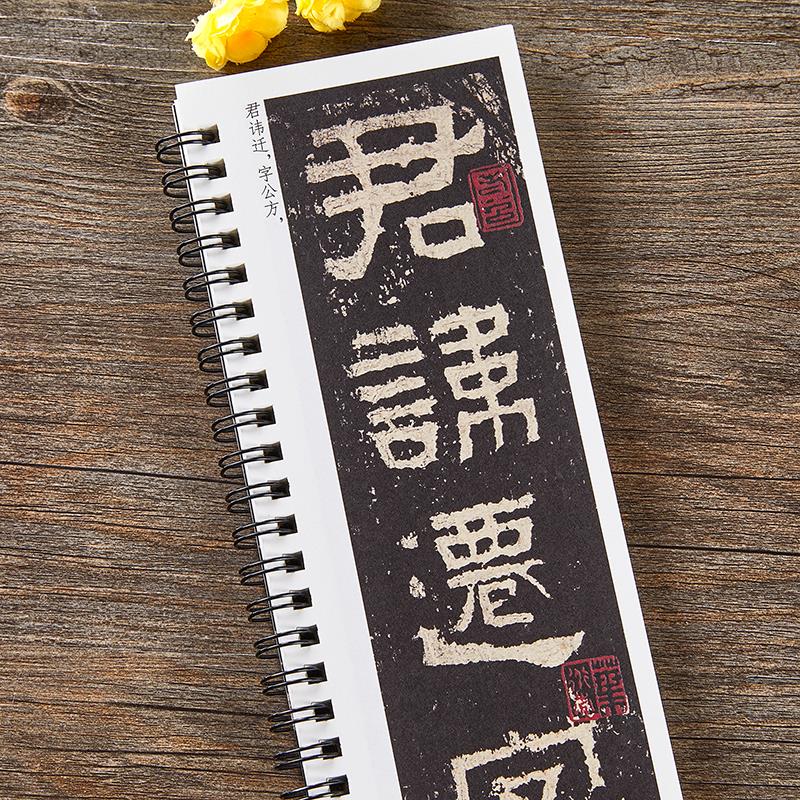 君讳迁，字公方，
君諱遷字